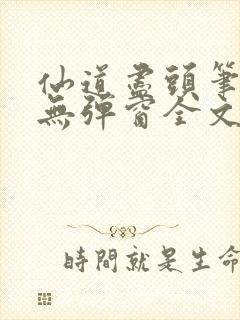 仙道盡頭筆
無彈窗全文
時間就是生命